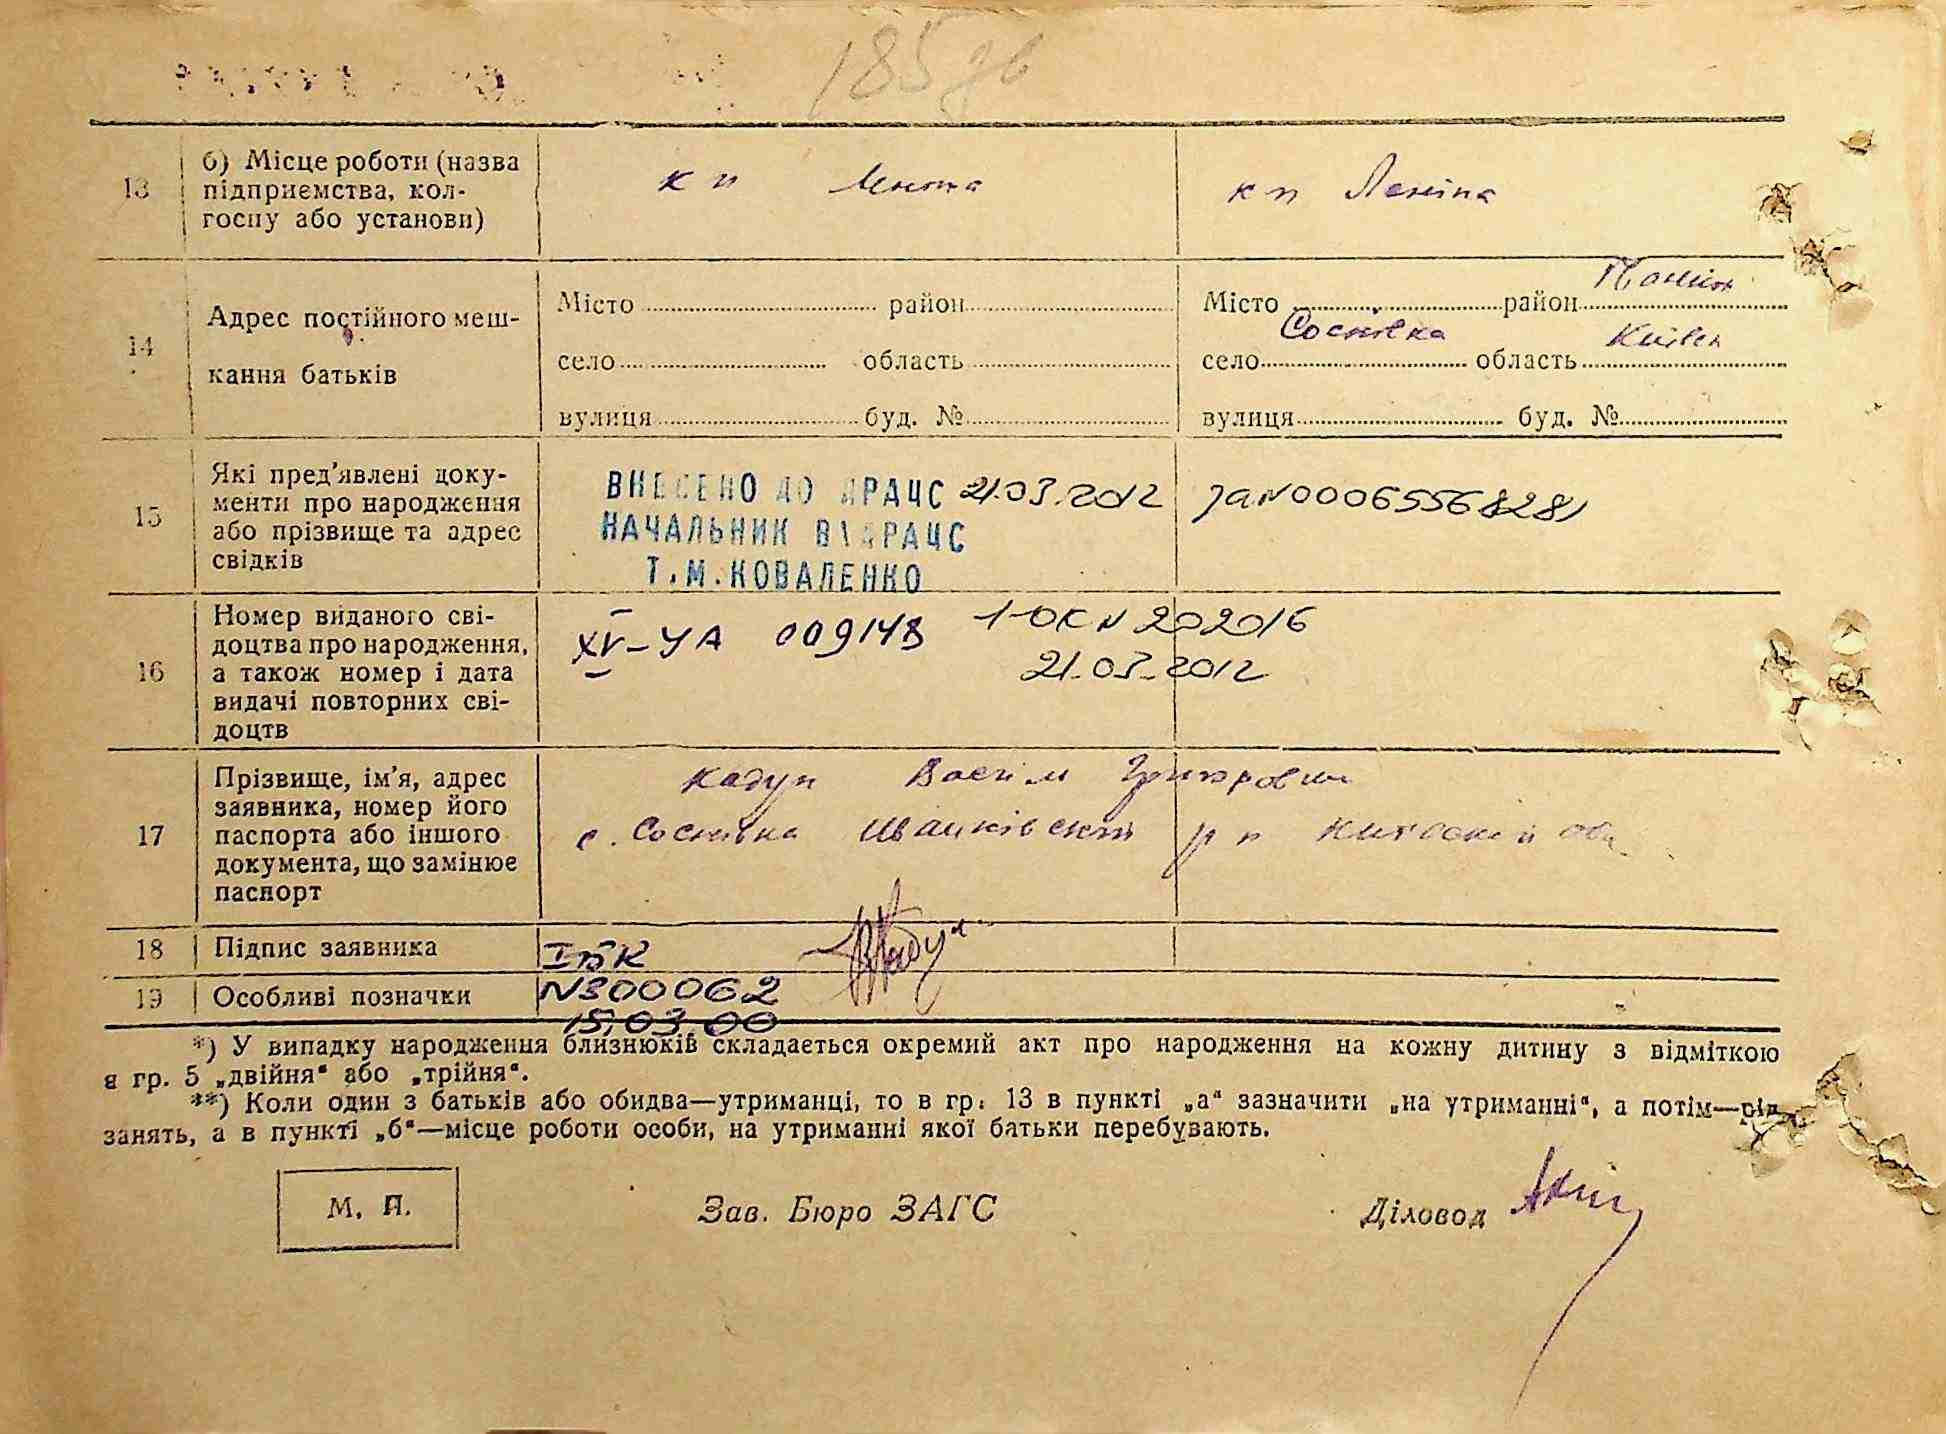 185 зв
13 б) Місце роботи (назва підприємства, колгоспу або установи)
к п
к п Леніна
14 Адрес постійного мешкання батьків
Місто район
село область
вулиця буд. №
Місто район
село Соснівка область Київск
вулиця буд. №
15 Які пред'явлені документи про народження або прізвище та адрес свідків
ВНЕСЕНО ДО ДРАЦС 21.03.2012
НАЧАЛЬНИК ВДРАЦС
Т.М.КОВАЛЕНКО
16 Номер виданого свідоцтва про народження, а також номер і дата видачі повторних свідоцтв
XV-УА 009148
1-ОК N 202016
21.03.2012
17 Прізвище, ім'я, адрес заявника, номер його паспорта або іншого документа, що замінює паспорт
Кадун
с. Соснівка Іванківський р н
18 Підпис заявника
ІБК
19 Особливі позначки
N300062
15.03.00
*) У випадку народження близнюків складається окремий акт про народження на кожну дитину з відміткою
в гр. 5 „двійня" або „трійня".
**) Коли один з батьків або обидва—утриманці, то в гр. 13 в пункті „а" зазначити „на утриманні", а потім—рід
занять, а в пункті „б"—місце роботи особи, на утриманні якої батьки перебувають.
М. П.
Зав. Бюро ЗАГС
Діловод